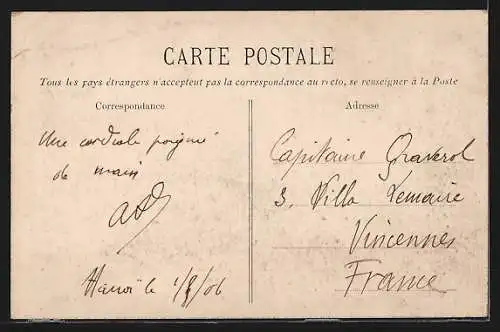 CARTE POSTALE
Tous les pays étrangers n'acceptent pas la correspondance au recto, se renseigner à la Poste
Correspondance
Une cordiale poignée
de main
Hanoï le 1/8/06
Adresse
Capitaine Graverol
3, Villa Lemaire
Vincennes
France